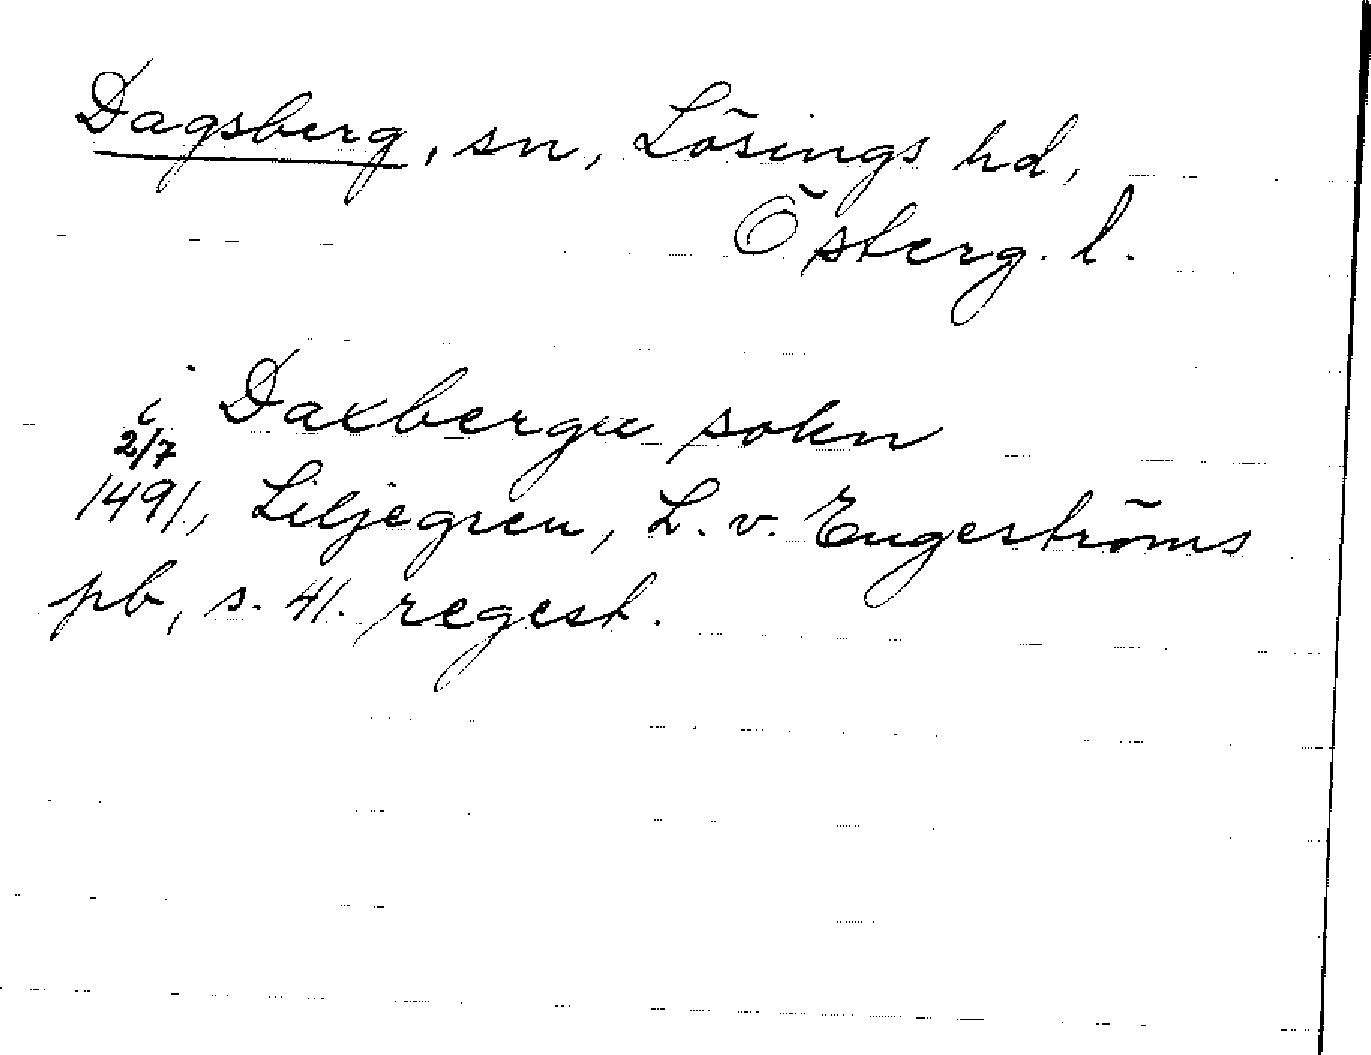 Dagsberg, sn, Lösings hd,
Österg. l.
i Daxbergæ sokn
2/7
1491, Liljegren, L. v. Engeströms
pb, s. 41. regest.